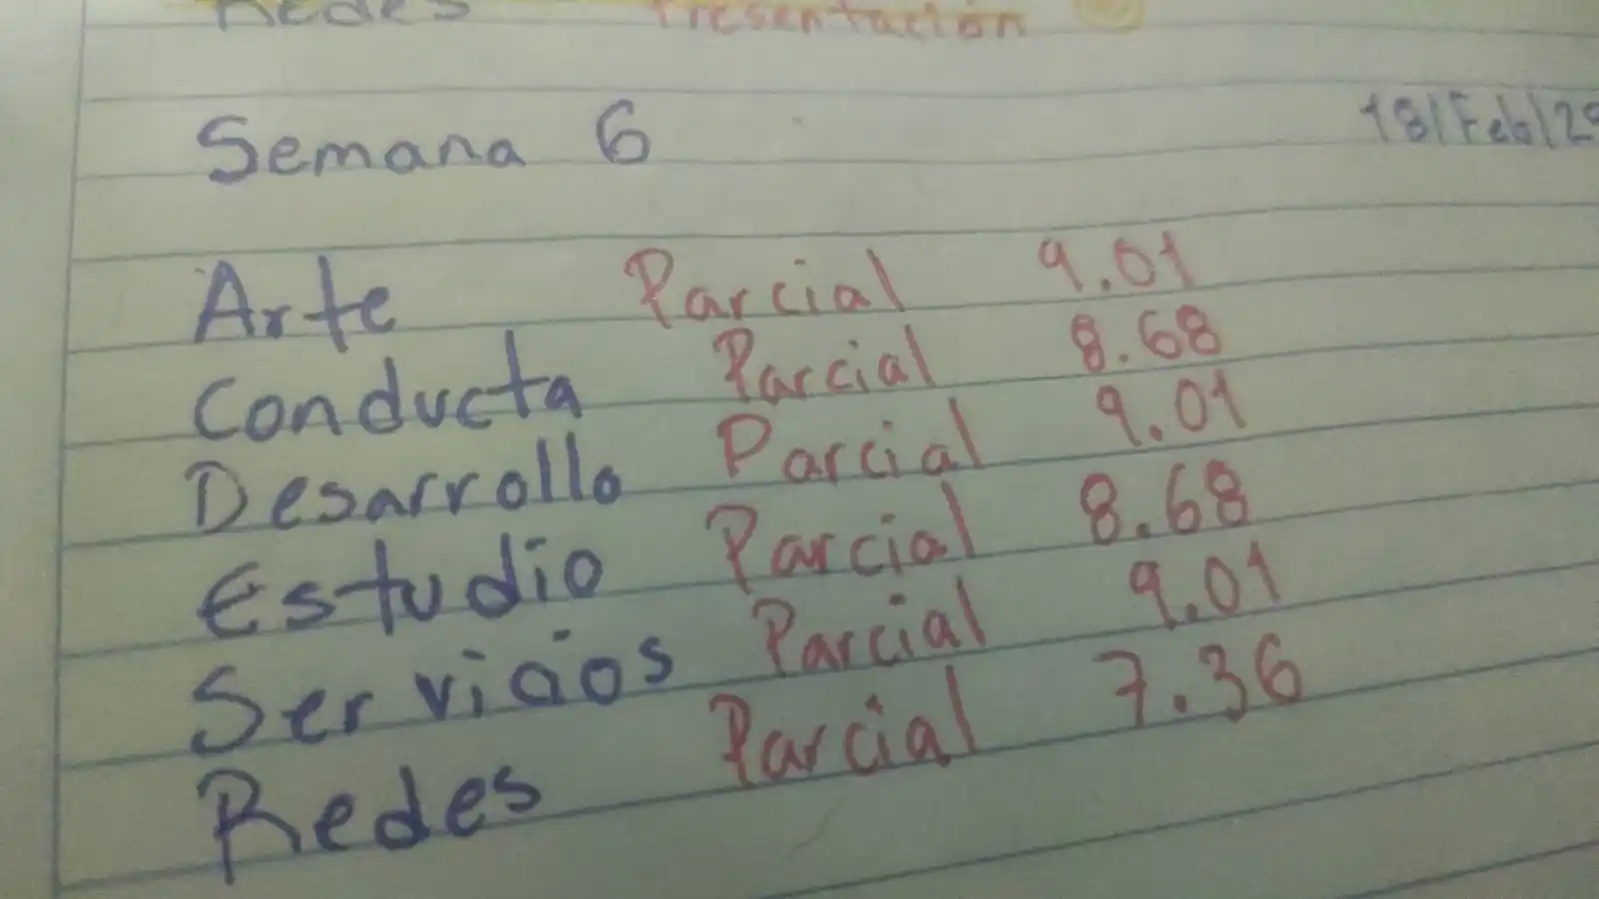 Redes Presentación
Semana 6 18/Feb/20
Arte Parcial 9.01
Conducta Parcial 8.68
Desarrollo Parcial 9.01
Estudio Parcial 8.68
Servicios Parcial 9.01
Redes Parcial 7.36